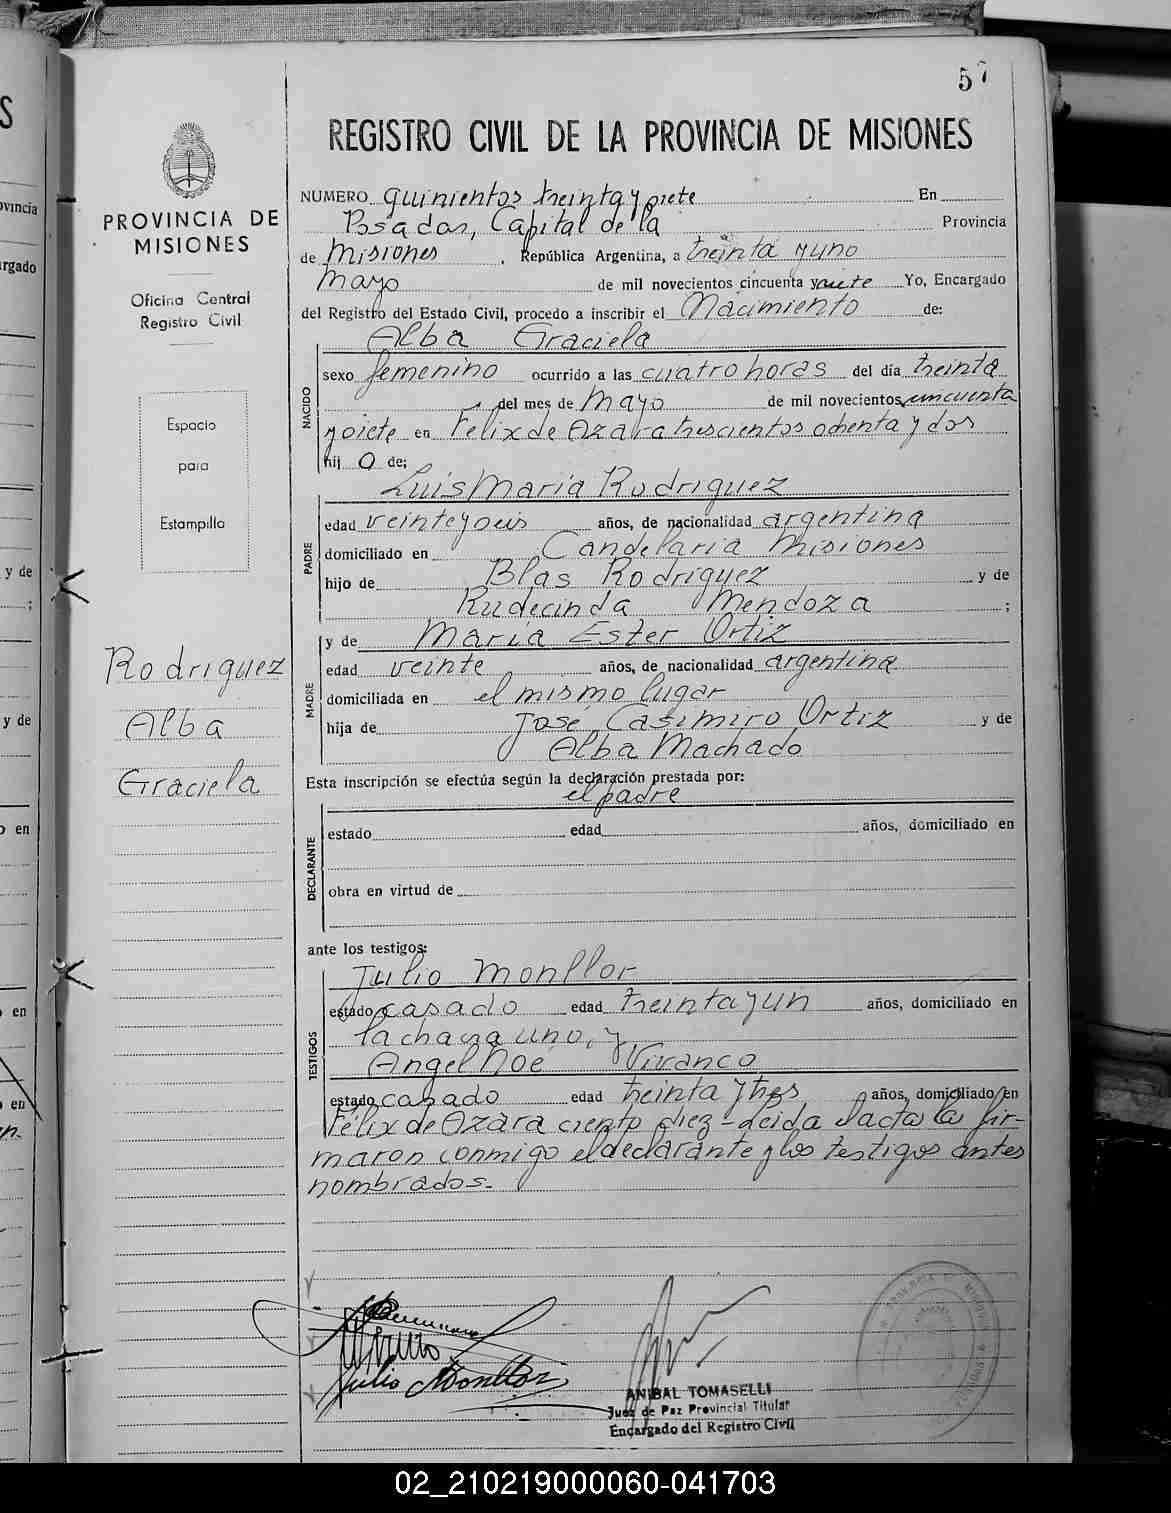 57
REGISTRO CIVIL DE LA PROVINCIA DE MISIONES
PROVINCIA DE
MISIONES
Oficina Central
Registro Civil
Espacio
para
Estampilla
Rodriguez
Alba
Graciela
NUMERO quinientos treinta y siete En
Posadas, Capital de la Provincia
de Misiones, República Argentina, a treinta y uno
Mayo de mil novecientos cincuenta y siete Yo, Encargado
del Registro del Estado Civil, procedo a inscribir el Nacimiento de:
Alba Graciela
NACIDO
sexo femenino ocurrido a las cuatro horas del día treinta
del mes de Mayo de mil novecientos cincuenta
y siete en Félix de Azara trescientos ochenta y dos
hij o de:
Luis Maria Rodriguez
PADRE
edad veinte y seis años, de nacionalidad argentina
domiciliado en Candelaria Misiones
hijo de Blas Rodriguez y de
Rudecinda Mendoza ;
y de Maria Ester Ortiz
MADRE
edad veinte años, de nacionalidad argentina
domiciliada en el mismo lugar
hija de José Casimiro Ortiz y de
Alba Machado
Esta inscripción se efectúa según la declaración prestada por:
el padre
DECLARANTE
estado edad años, domiciliado en
obra en virtud de
ante los testigos:
Julio Monllor
TESTIGOS
estado casado edad treinta y un años, domiciliado en
la chacra uno, y
Angel Noé Vivanco
estado casado edad treinta y tres años, domiciliado en
Félix de Azara ciento diez - Leida el acta la fir-
maron conmigo el declarante y los testigos antes
nombrados.-
Julio Monllor
ANIBAL TOMASELLI
Juez de Paz Provincial Titular
Encargado del Registro Civil
02_210219000060-041703